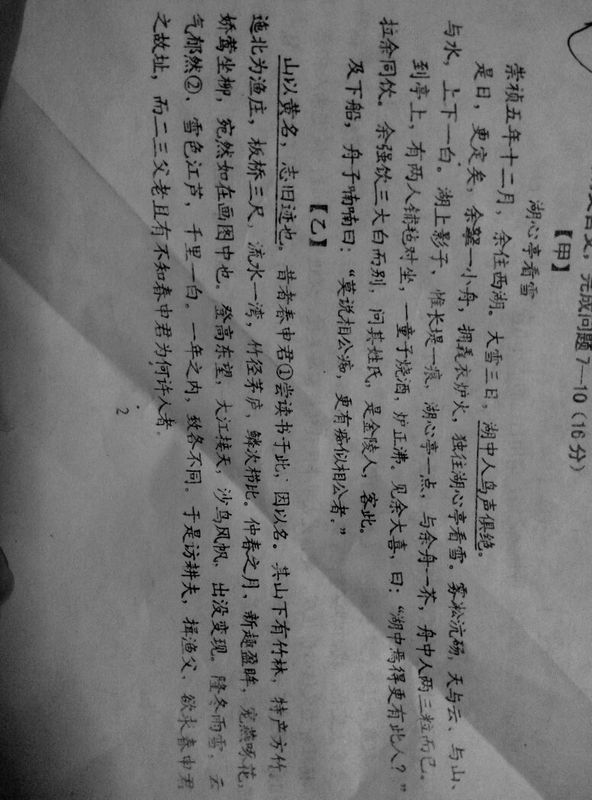 文言文，完成问题7—10（16分）
【甲】
湖心亭看雪
崇祯五年十二月，余住西湖。大雪三日，湖中人鸟声俱绝。
是日，更定矣，余拏一小舟，拥毳衣炉火，独往湖心亭看雪。雾凇沆砀，天与云、与山、
与水，上下一白。湖上影子，惟长堤一痕、湖心亭一点、与余舟一芥，舟中人两三粒而已。
到亭上，有两人铺毡对坐，一童子烧酒，炉正沸。见余大喜，曰：“湖中焉得更有此人？”
拉余同饮。余强饮三大白而别，问其姓氏，是金陵人，客此。
及下船，舟子喃喃曰：“莫说相公痴，更有痴似相公者。”
【乙】
山以黄名，志旧迹也。昔者春申君①尝读书于此，因以名。其山下有竹林，特产方竹。
迤北为渔庄，板桥三尺，流水一湾，竹径茅庐，鳞次栉比。仲春之月，新趣盈眸，宠燕啄花，
娇莺坐柳，宛然如在画图中也。登高东望，大江接天，沙鸟风帆，出没变现。隆冬雨雪，云
气郁然②，雪色江芦，千里一白。一年之内，致各不同。于是访耕夫，揖渔父，欲求春申君
之故址，而二三父老且有不知春申君为何许人者。
2